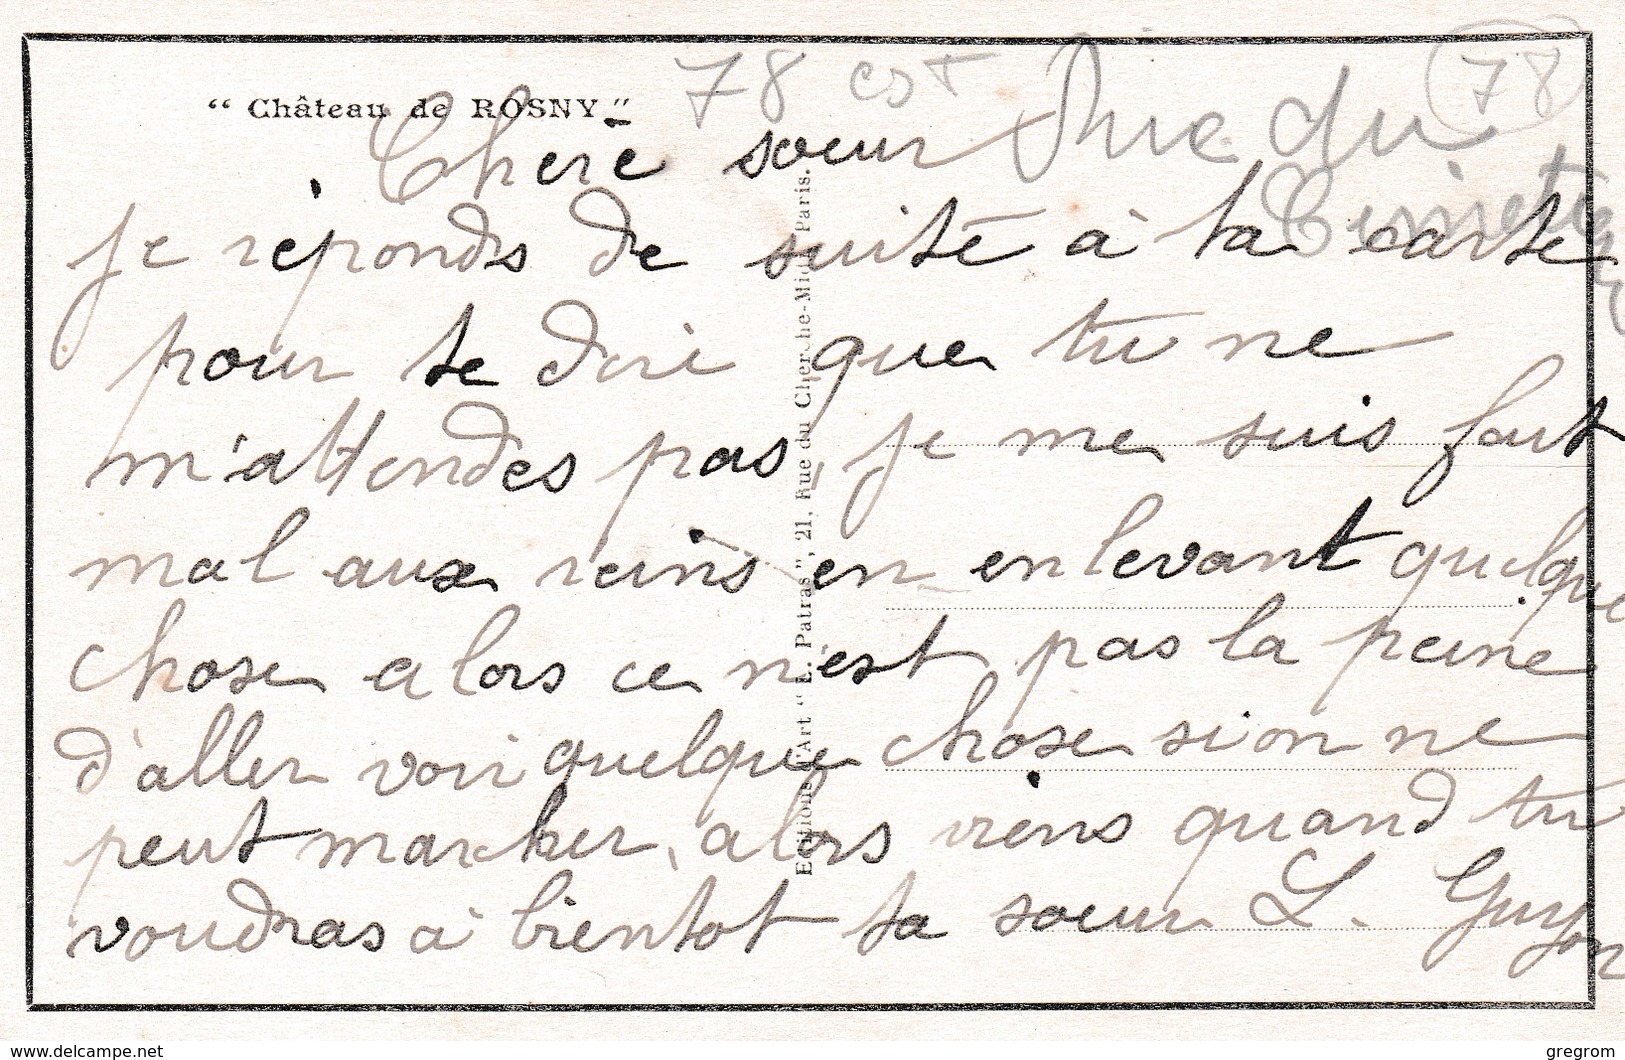 78 est (78)
" Château de ROSNY "
Rue du
Cimetière
Chere sœur
je réponds de suite à ta carte
pour te dire que tu ne
m'attendes pas, je me suis fait
mal aux reins en enlevant quelque
chose alors ce n'est pas la peine
d'aller voir quelque chose si on ne
peut marcher, alors viens quand tu
voudras à bientot ta sœur L. Guyon
Editions d'Art " L. Patras ", 21, Rue du Cherche-Midi, Paris.
www.delcampe.net
gregrom